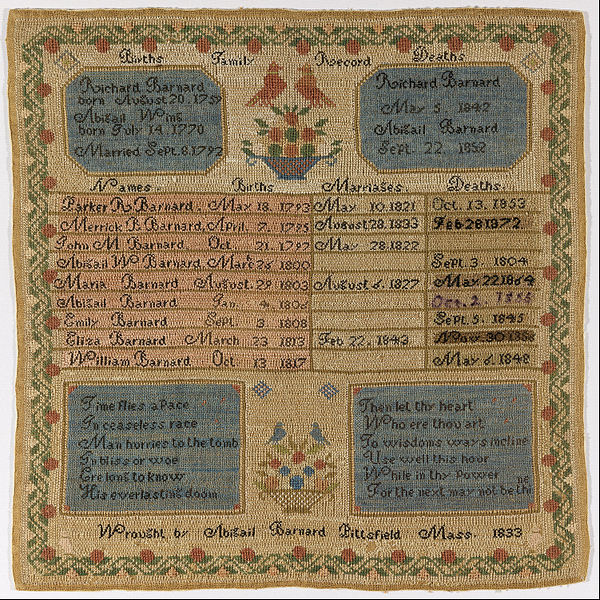 Births Family Record Deaths
Richard Barnard
born August 20. 1759
Abigail Wing
born July 14. 1770
Married Sept. 8. 1792
Richard Barnard
May 5 1842
Abigail Barnard
Sept. 22 1852
Names. Births Marriages Deaths.
Parker R. Barnard. May 18. 1793 May 10. 1821 Oct. 13. 1853
Merrick B Barnard. April. 7. 1795 August 28. 1833 Feb 28 1872.
John M Barnard Oct 21 1797 May 28. 1822
Abigail W Barnard March 26 1800 Sept. 3. 1804
Maria Barnard August. 29 1803 August 6. 1827 May 22. 1864
Abigail Barnard Jan. 4 1806 Oct. 2.
Emily Barnard Sept. 3 1808 Sept. 5. 1845
Eliza Barnard March 23 1813 Feb 22. 1843 Nov. 30
William Barnard Oct 13 1817 May 6. 1848
Time flies apace
In ceaseless race
Man hurries to the tomb
In bliss or woe
Ere long to know
His everlasting doom
Then let thy heart
Who ere thou art
To wisdoms ways incline
Use well this hour
While in thy power
For the next may not be thi ne
Wrought by Abigail Barnard Pittsfield Mass. 1833